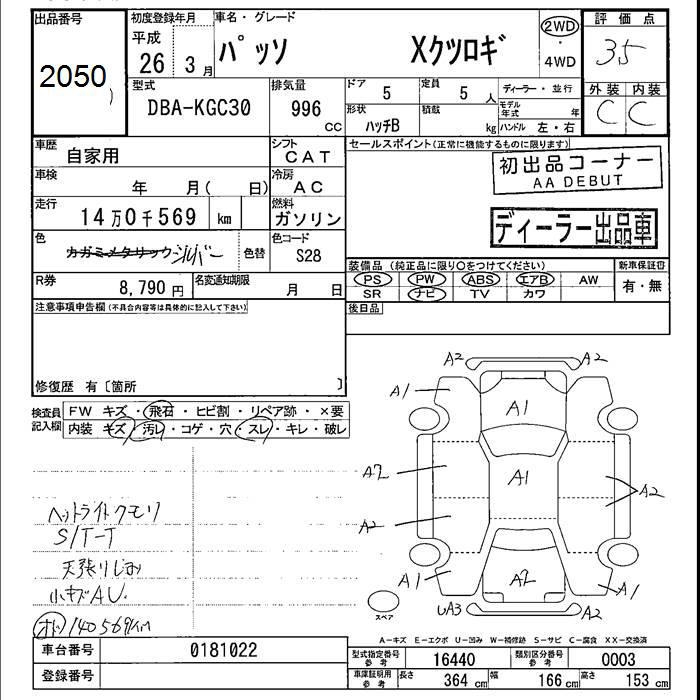 出品番号 初度登録年月 車名・グレード 2WD・4WD 評価点
2050 平成 26 3月 パッソ Xクツロギ 3.5
型式 排気量 ドア 5 定員 5人 ディーラー・並行 外装 内装
DBA-KGC30 996 CC 形状 ハッチB 積載 kg モデル年式 年 ハンドル 左・右 C C
車歴 自家用 シフト CAT セールスポイント(正常に機能するものに限ります)
車検 年 月( 日) 冷房 AC 初出品コーナー
AA DEBUT
走行 14万0千569 km 燃料 ガソリン ディーラー出品車
色 カガミメタリック シルバー 色替 色コード S28
装備品(純正品に限り○をつけてください) 新車保証書
R券 8,790円 名変通知期限 月 日 PS PW ABS エアB AW 有・無
SR ナビ TV カワ
注意事項申告欄(不具合内容等は具体的に記入して下さい) 後日品
修復歴 有〔箇所 〕
検査員記入欄 FW キズ・飛石・ヒビ割・リペア跡・×要
内装 キズ・汚レ・コゲ・穴・スレ・キレ・破レ
A2 A2
A1 A1 A1
A2 A1 A2
A2
A1 A2 A1
UA3 A2
スペア
ヘットライトクモリ
S/T-T
天張りじみ
小キズAU.
オド 140569km
A-キズ E-エクボ U-凹み W-補修跡 S-サビ C-腐食 XX-交換済
車台番号 0181022 型式指定番号 参考 16440 類別区分番号 参考 0003
登録番号 車庫証明用 参考 長さ 364 cm 幅 166 cm 高さ 153 cm